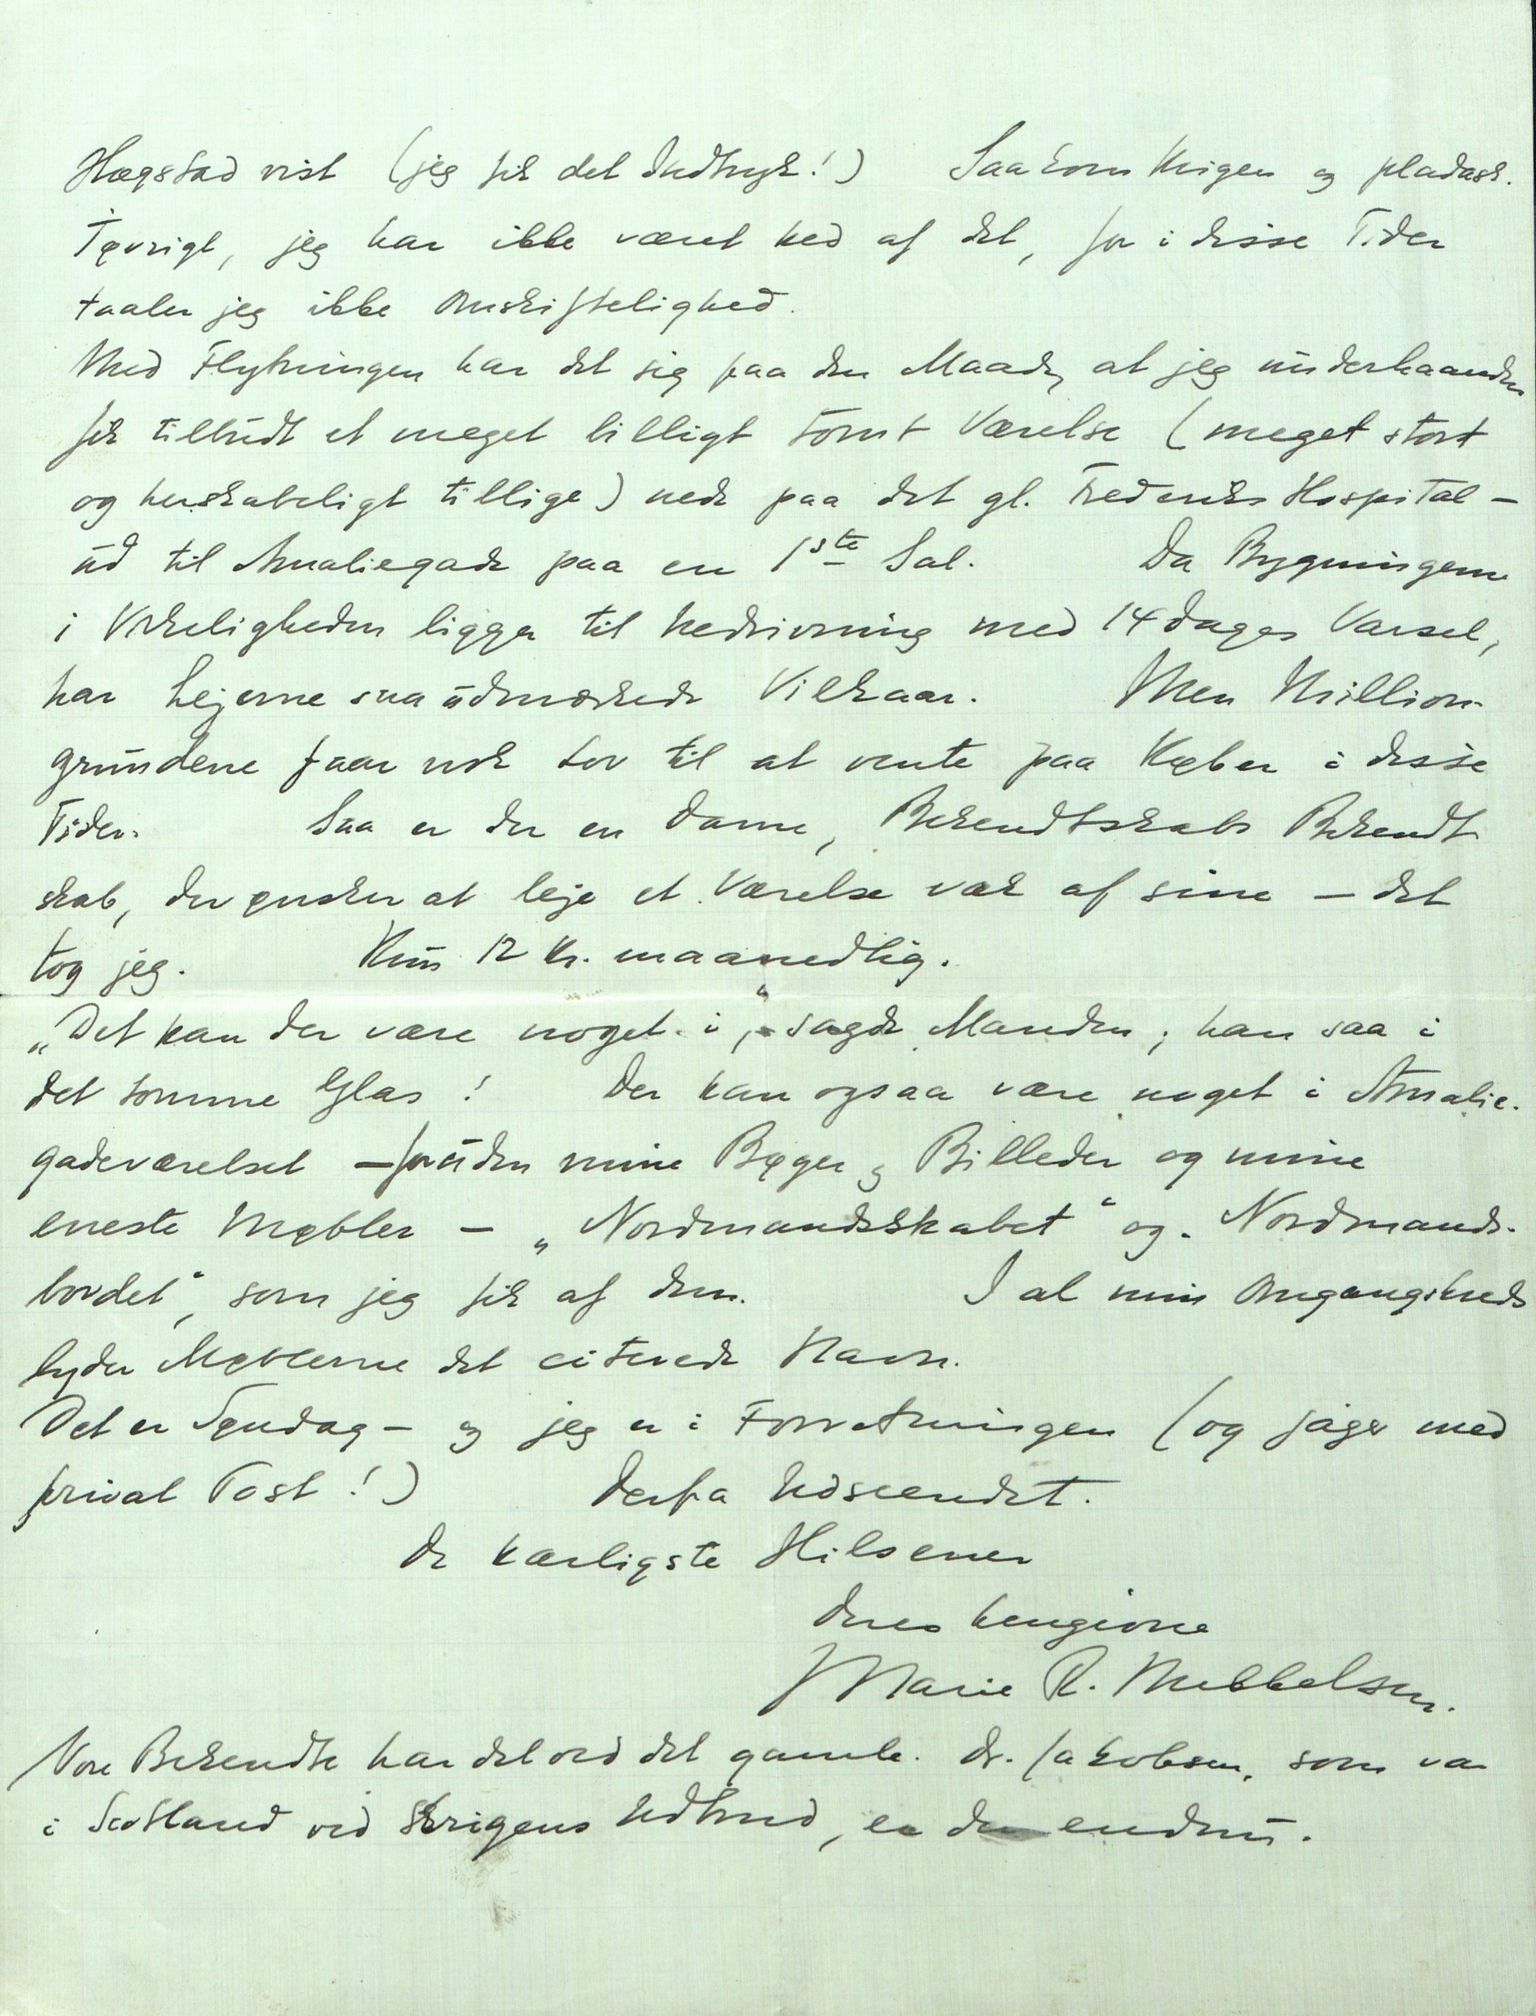 Hægstad vist (jeg fik det Indtryk!) Saa kom Krigen og pladask.
Iøvrigt, jeg har ikke været ked af det, for i disse Tider
taaler jeg ikke Omskiftelighed.
Med Flytningen har det sig paa den Maade, at jeg underhaanden
fik tilbudt et meget billigt tomt Værelse (meget stort
og herskabeligt tillige) nede paa det gl. Frederiks Hospital –
ud til Amaliegade paa en 1ste Sal. Da Bygningerne
i Virkeligheden ligger til Nedrivning med 14 Dages Varsel,
har Lejerne saa udmærkede Vilkaar. Men Million-
grundene faar nok Lov til at vente paa Køber i disse
Tider. Saa er der en Dame, Bekendtskabs Bekendt-
skab, der ønsker at leje et Værelse væk af sine – det
tog jeg. Kun 12 Kr. maanedlig.
„Det kan der være noget i," sagde Manden; han saa i
det tomme Glas! Der kan ogsaa være noget i Amalie-
gadeværelset – foruden mine Bøger og Billeder og mine
eneste Møbler – „Nordmandsskabet" og „Nordmands-
bordet", som jeg fik af dem. I al min Omgangskreds
lyder Møblerne det citerede Navn.
Det er Søndag – og jeg er i Forretningen (og jager med
privat Post!) Derfra Udseendet.
De kærligste Hilsener
Deres hengivne
Marie R. Mikkelsen.
Vore Bekendte har det ved det gamle. Dr. Jakobsen, som var
i Scotland ved Krigens Udbrud, er der endnu.